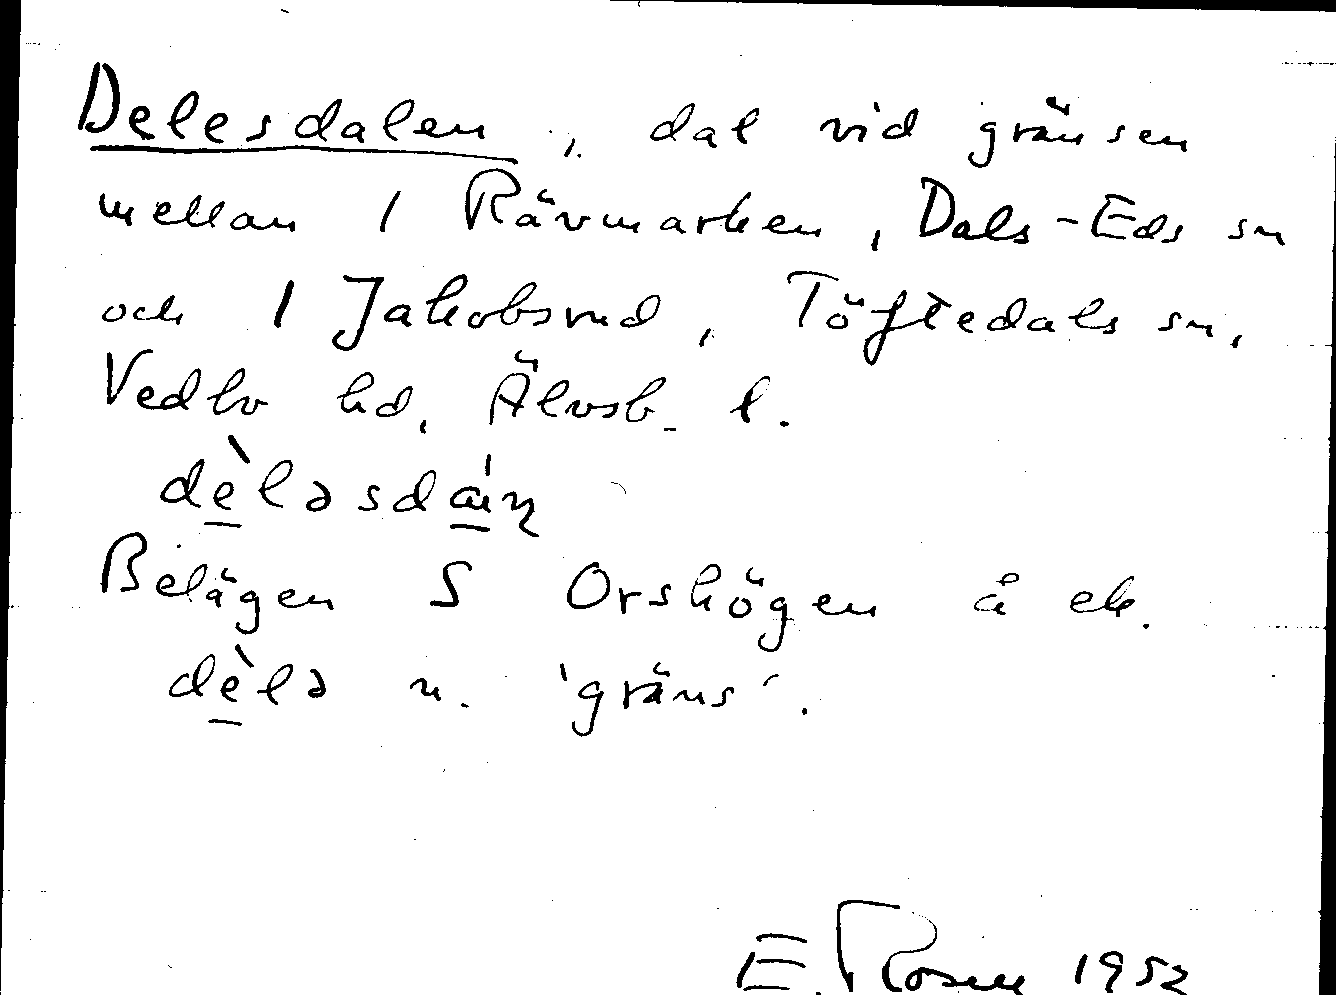 Delesdalen, dal vid gränsen
mellan 1 Rävmarken, Dals-Eds sn
och 1 Jakobsrud, Töftedals sn,
Vedbo hd, Älvsb. l.
dè̱ləsdá̱n
Belägen S Orshögen å ek.
dè̱lə n. 'gräns'.
E. Rosén 1952